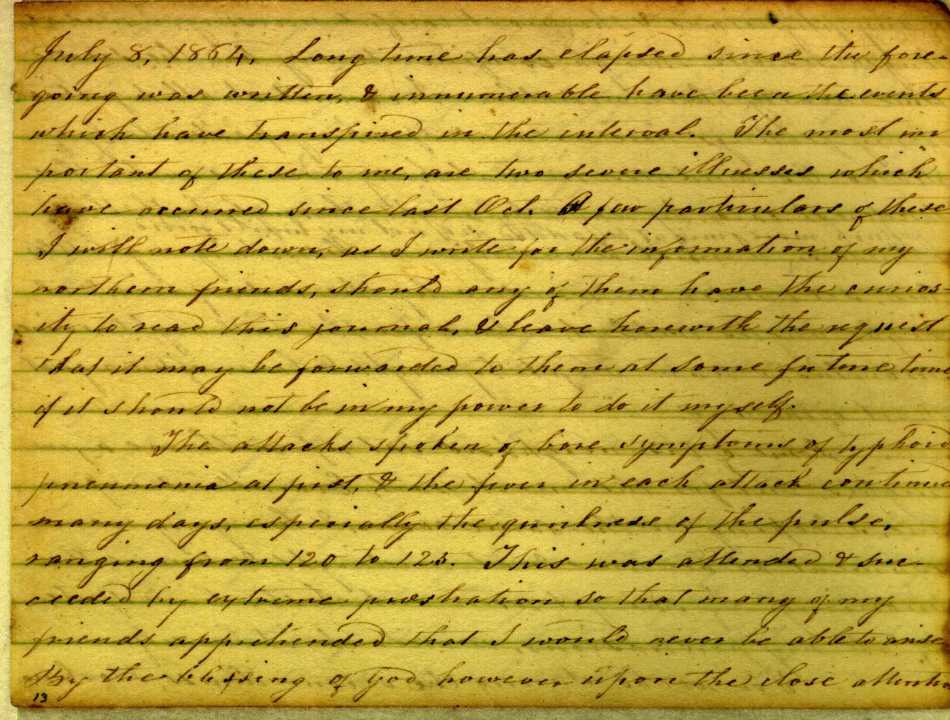 July 8, 1864. Long time has elapsed since the fore-
going was written, & innumerable have been the events
which have transpired in the interval. The most im
portant of these to me, are two severe illnesses which
have occurred since last Oct. A few particulars of these
I will note down, as I write for the information of my
northern friends, should any of them have the curios-
ity to read this journal, & leave herewith the request
that it may be forwarded to them at some future time
if it should not be in my power to do it myself.
The attacks spoken of bore symptoms of typhoid
pneumonia at first, & the fever in each attack continued
many days, especially the quickness of the pulse,
ranging from 120 to 125. This was attended & suc-
ceeded by extreme prostration so that many of my
friends apprehended that I would never be able to arise
By the blessing of God however upon the close attention
13